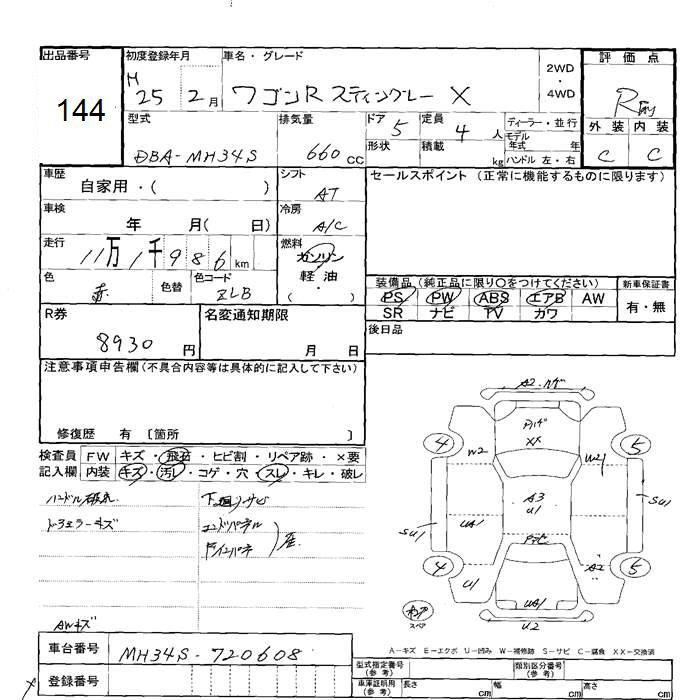 出品番号
144
初度登録年月
H 25 年 2 月
車名・グレード
ワゴンR スティングレー X
2WD
・
4WD
評価点
外装 内装
C C
型式
DBA-MH34S
排気量
660 CC
ドア
5
定員
4 人
形状
積載
kg
ディーラー・並行
モデル年式 年
ハンドル 左・右
車歴
自家用・( )
シフト
AT
セールスポイント (正常に機能するものに限ります)
車検
年 月( 日)
冷房
A/C
走行
11万1千986 km
燃料
ガソリン
・
軽油
・
( )
色
赤
色替
色コード
ZLB
装備品 (純正品に限り○をつけてください)
PS PW ABS エアB AW
SR ナビ TV カワ
新車保証書
有・無
R券
8930 円
名変通知期限
月 日
後日品
注意事項申告欄(不具合内容等は具体的に記入して下さい)
修復歴 有 〔箇所 〕
検査員記入欄
FW キズ・飛石・ヒビ割・リペア跡・×要
内装 キズ・汚レ・コゲ・穴・スレ・キレ・破レ
ハンドル
サビ
キズ
エンドパネル
AWキズ
A2
XX
4
5
W2
W2
A3
U1
SU1
SU1
UA1
4
5
U1
A2
UA1
U2
スペア
A-キズ E-エクボ U-凹み W-補修跡 S-サビ C-腐食 XX-交換済
車台番号
MH34S-720608
登録番号
型式指定番号
(参考)
類別区分番号
(参考)
車庫証明用
(参考)
長さ cm
幅 cm
高さ cm